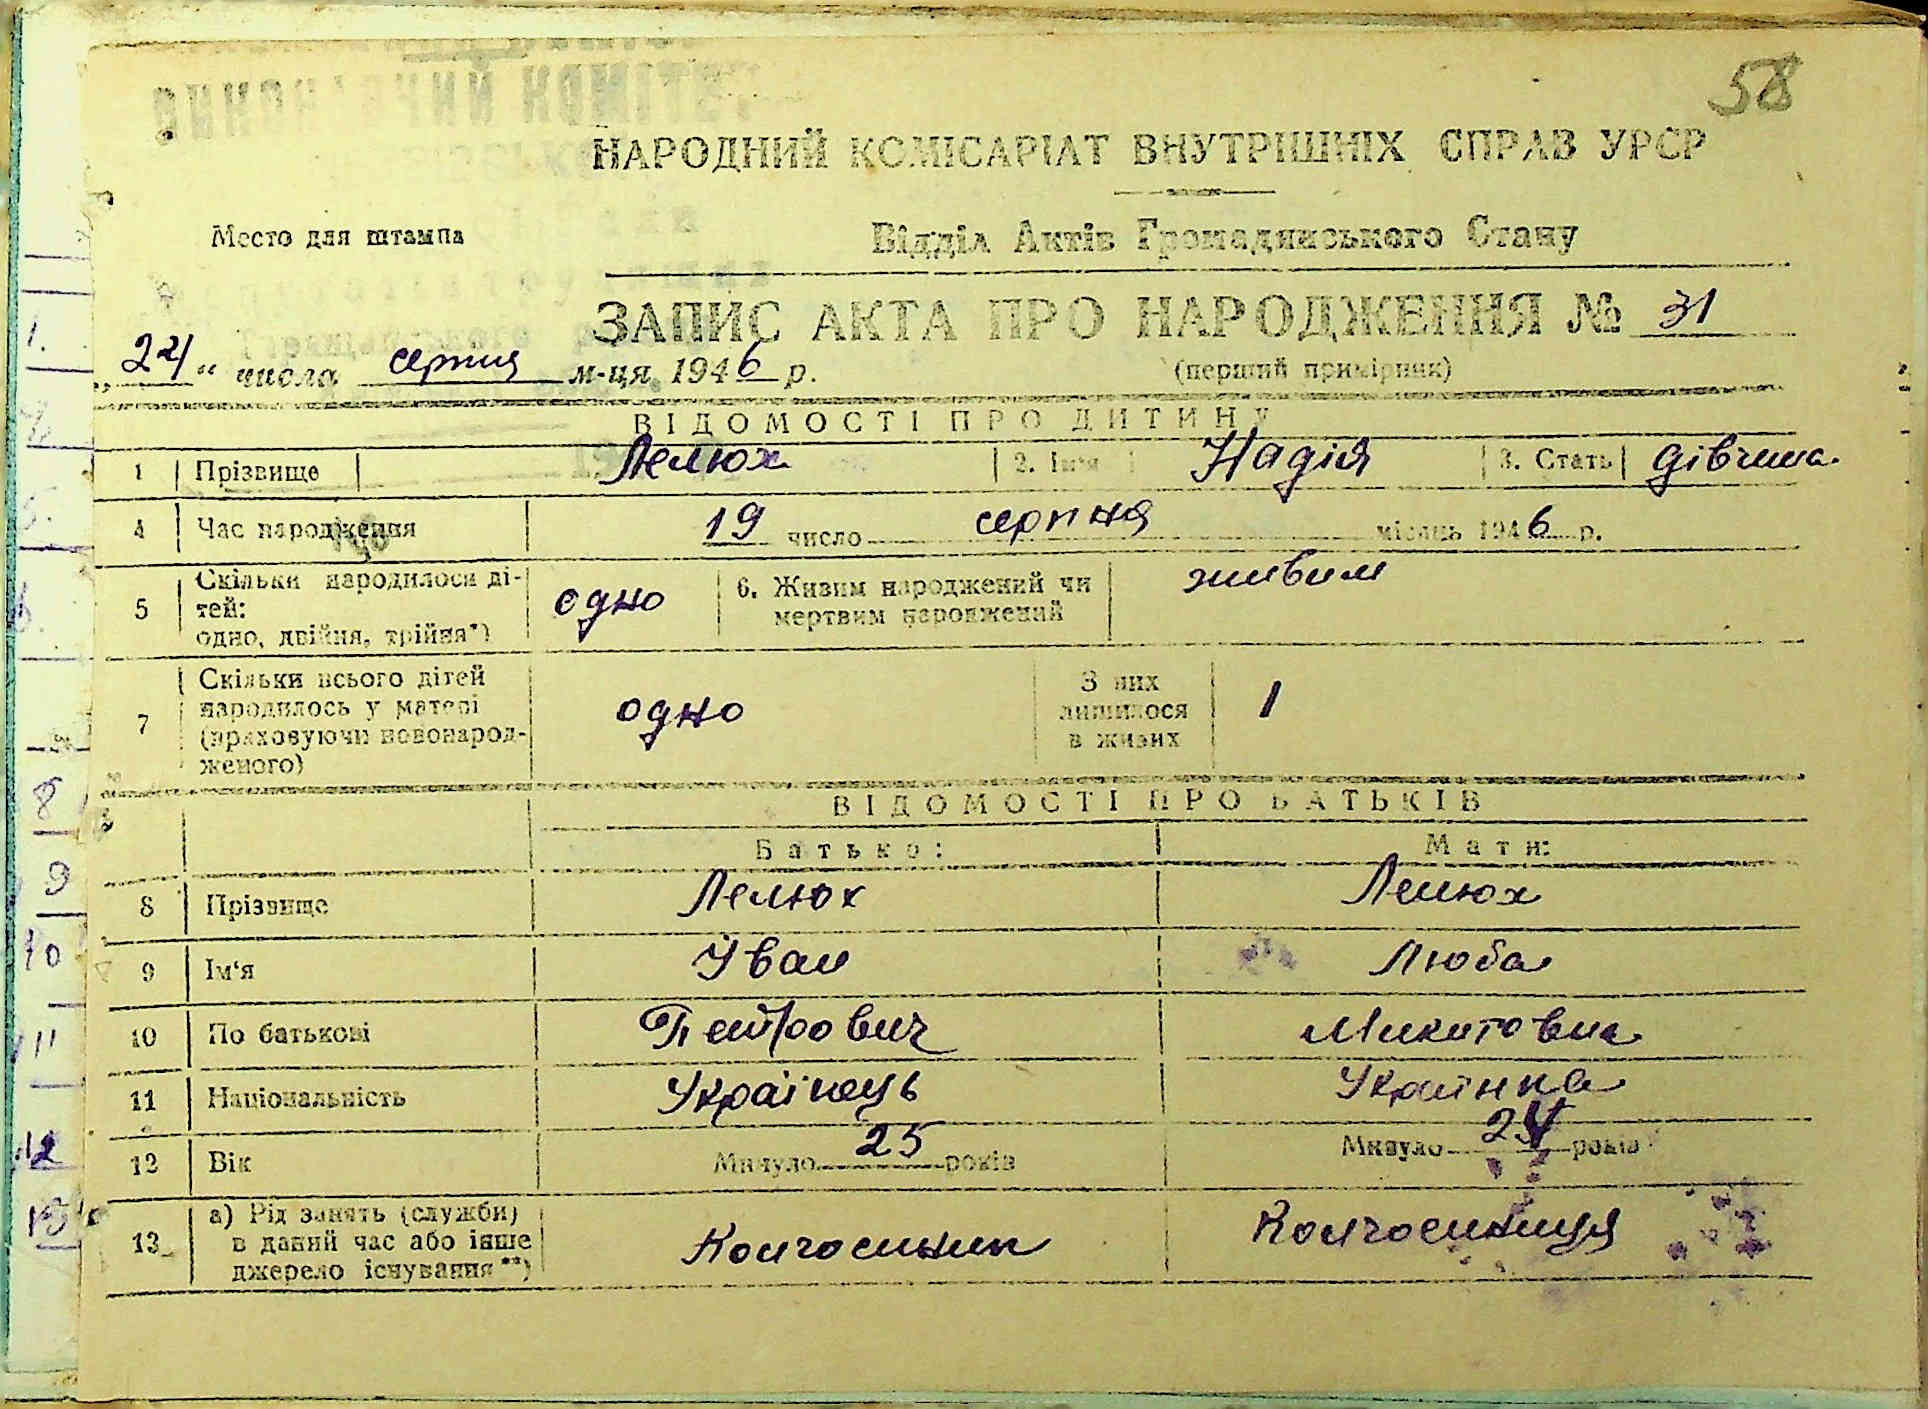 58
НАРОДНИЙ КОМІСАРІАТ ВНУТРІШНІХ СПРАВ УРСР
Место для штампа
Відділ Актів Громадянського Стану
ЗАПИС АКТА ПРО НАРОДЖЕННЯ № 31
„24“ числа серпня м-ця 1946 р.
(перший примірник)
ВІДОМОСТІ ПРО ДИТИНУ
1 Прізвище Лелюх 2. Ім'я Надія 3. Стать дівчина
4 Час народження 19 число серпня місяць 1946 р.
5 Скільки народилося ді-
тей:
одно, двійня, трійня*) одно 6. Живим народжений чи
мертвим народжений живим
7 Скільки всього дітей
народилось у матері
(враховуючи новонарод-
женого) одно З них
лишилося
в живих 1
ВІДОМОСТІ ПРО БАТЬКІВ
Батько: Мати:
8 Прізвище Лелюх Лелюх
9 Ім'я Іван Люба
10 По батькові Петрович Микитовна
11 Національність Українець Українка
12 Вік Минуло 25 років Минуло 24 років
13 а) Рід занять (служби)
в даний час або інше
джерело існування**) Колгоспник Колгоспниця